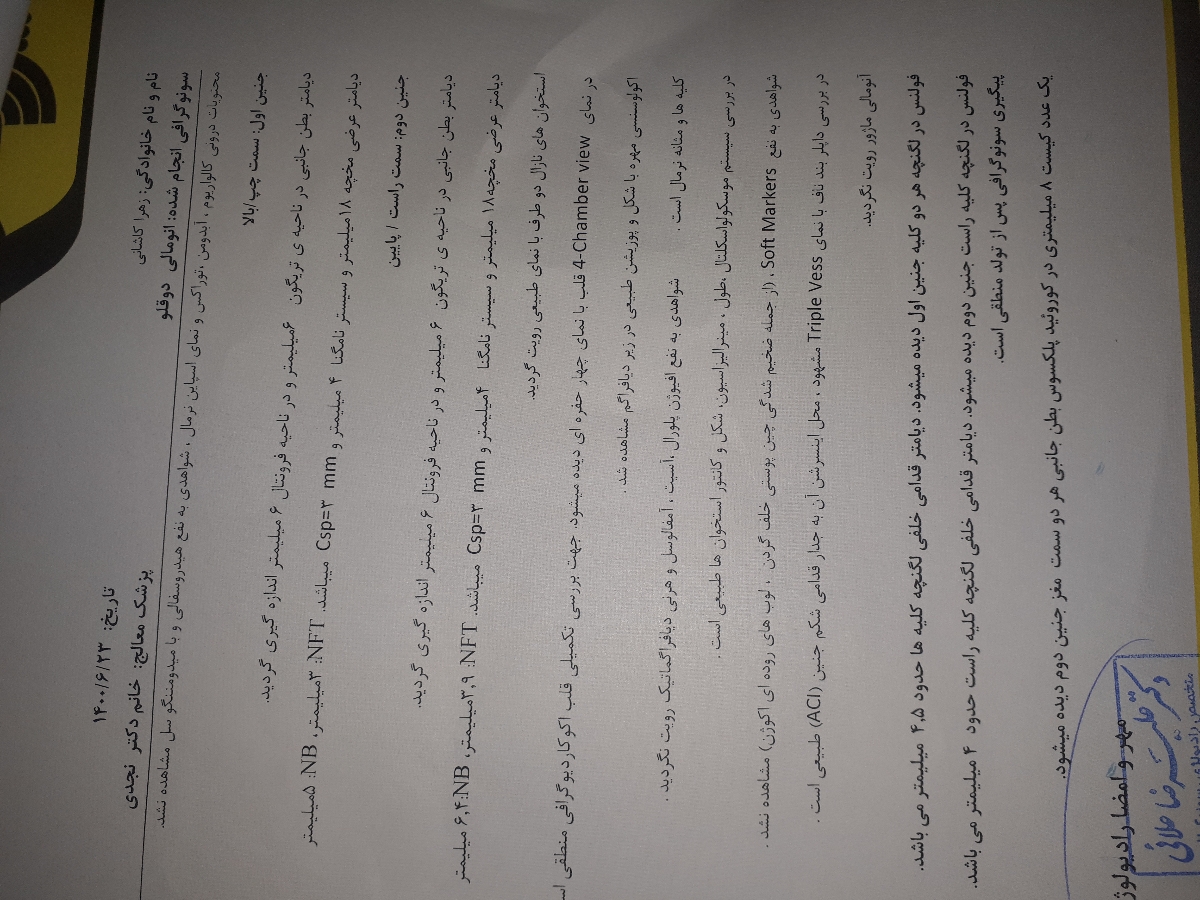 تاریخ: ۱۴۰۰/۶/۲۳
نام و نام خانوادگی: زهرا کاشانی پزشک معالج: خانم دکتر نجدی
سونوگرافی انجام شده: انومالی دوقلو
محتویات درونی کالواریوم ، آبدومن ،توراکس و نمای اسپاین نرمال ، شواهدی به نفع هیدروسفالی و یا میدومننگو سل مشاهده نشد.
جنین اول: سمت چپ/بالا
دیامتر بطن جانبی در ناحیه ی تریگون ۶میلیمتر و در ناحیه فرونتال ۶ میلیمتر اندازه گیری گردید.
دیامتر عرضی مخچه ۱۸میلیمتر و سیستر نامگنا ۴ میلیمتر و Csp=۳ mm میباشد. NFT: ۳میلیمتر، NB: ۵میلیمتر
جنین دوم: سمت راست / پایین
دیامتر بطن جانبی در ناحیه ی تریگون ۶ میلیمتر و در ناحیه فرونتال ۶ میلیمتر اندازه گیری گردید.
دیامتر عرضی مخچه۱۸ میلیمتر و سیستر نامگنا ۴میلیمتر و Csp=۳ mm میباشد. NFT: ۳,۹میلیمتر، NB:۶,۴ میلیمتر
استخوان های نازال دو طرف با نمای طبیعی رویت گردید.
در نمای 4-Chamber view قلب با نمای چهار حفره ای دیده میشود. جهت بررسی تکمیلی قلب اکوکاردیوگرافی منطقی
اکولوسنسی مهره با شکل و پوزیشن طبیعی در زیر دیافراگم مشاهده شد .
کلیه ها و مثانه نرمال است . شواهدی به نفع افیوژن پلورال ،آسیت ، آمفالوسل و هرنی دیافراگماتیک رویت نگردید .
در بررسی سیستم موسکولواسکلتال ،طول ، مینرالیزاسیون، شکل و کانتور استخوان ها طبیعی است .
شواهدی به نفع Soft Markers ، (از جمله ضخیم شدگی چین پوستی خلف گردن ، لوپ های روده ای اکوژن) مشاهده نشد .
در بررسی داپلر بند ناف با نمای Triple Vess مشهود ، محل اینسرشن آن به جدار قدامی شکم جنین (ACI) طبیعی است .
آنومالی ماژور رویت نگردید.
فولنس در لگنچه هر دو کلیه جنین اول دیده میشود. دیامتر قدامی خلفی لگنچه کلیه ها حدود ۴,۵ میلیمتر می باشد.
فولنس در لگنچه کلیه راست جنین دوم دیده میشود. دیامتر قدامی خلفی لگنچه کلیه راست حدود ۴ میلیمتر می باشد.
پیگیری سونوگرافی پس از تولد منطقی است.
یک عدد کیست ۸ میلیمتری در کوروئید پلکسوس بطن جانبی هر دو سمت مغز جنین دوم دیده میشود.
مهر و امضا